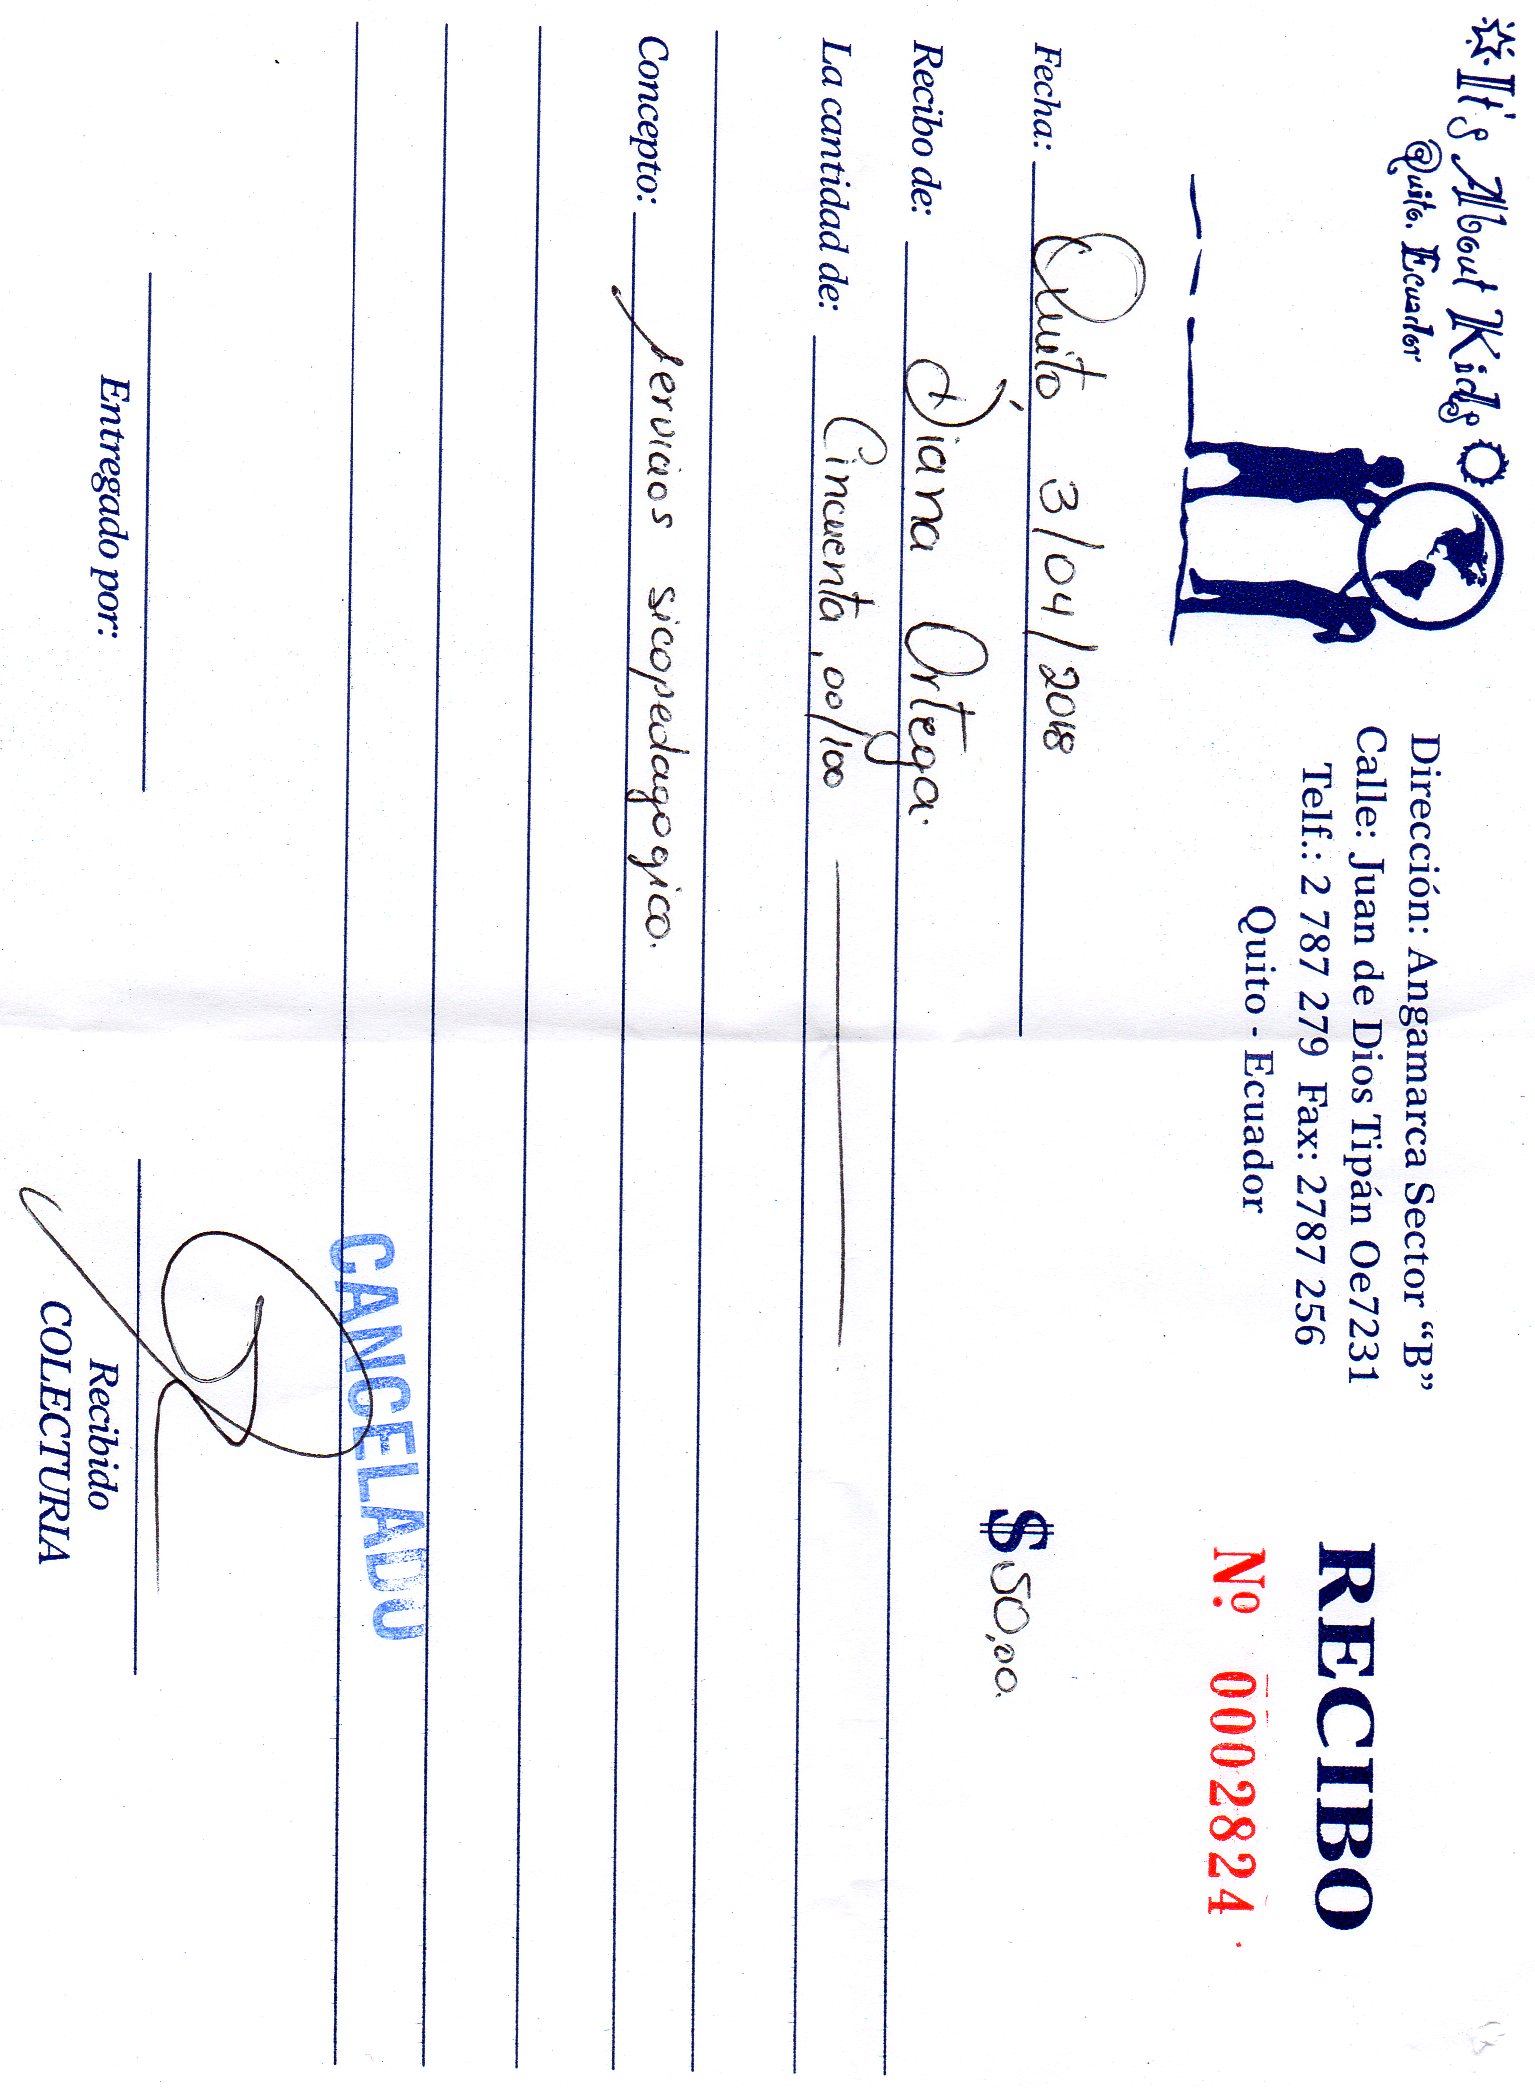 It's About Kids
Quito. Ecuador
Dirección: Angamarca Sector “B”
Calle: Juan de Dios Tipán Oe7231
Telf.: 2 787 279 Fax: 2787 256
Quito - Ecuador
RECIBO
Nº 0002824
Fecha: Quito 3/04/2018
$ 50,00.
Recibo de: Diana Ortega.
La cantidad de: Cincuenta ,00/100
Concepto: servicios sicopedagogico.
CANCELADO
Entregado por:
Recibido
COLECTURIA